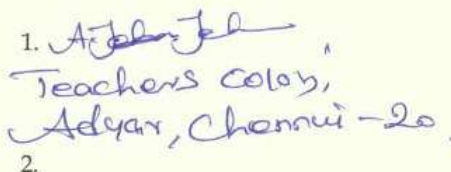 1. A.
Teachers Colony,
Adyar, Chennai - 20.
2.